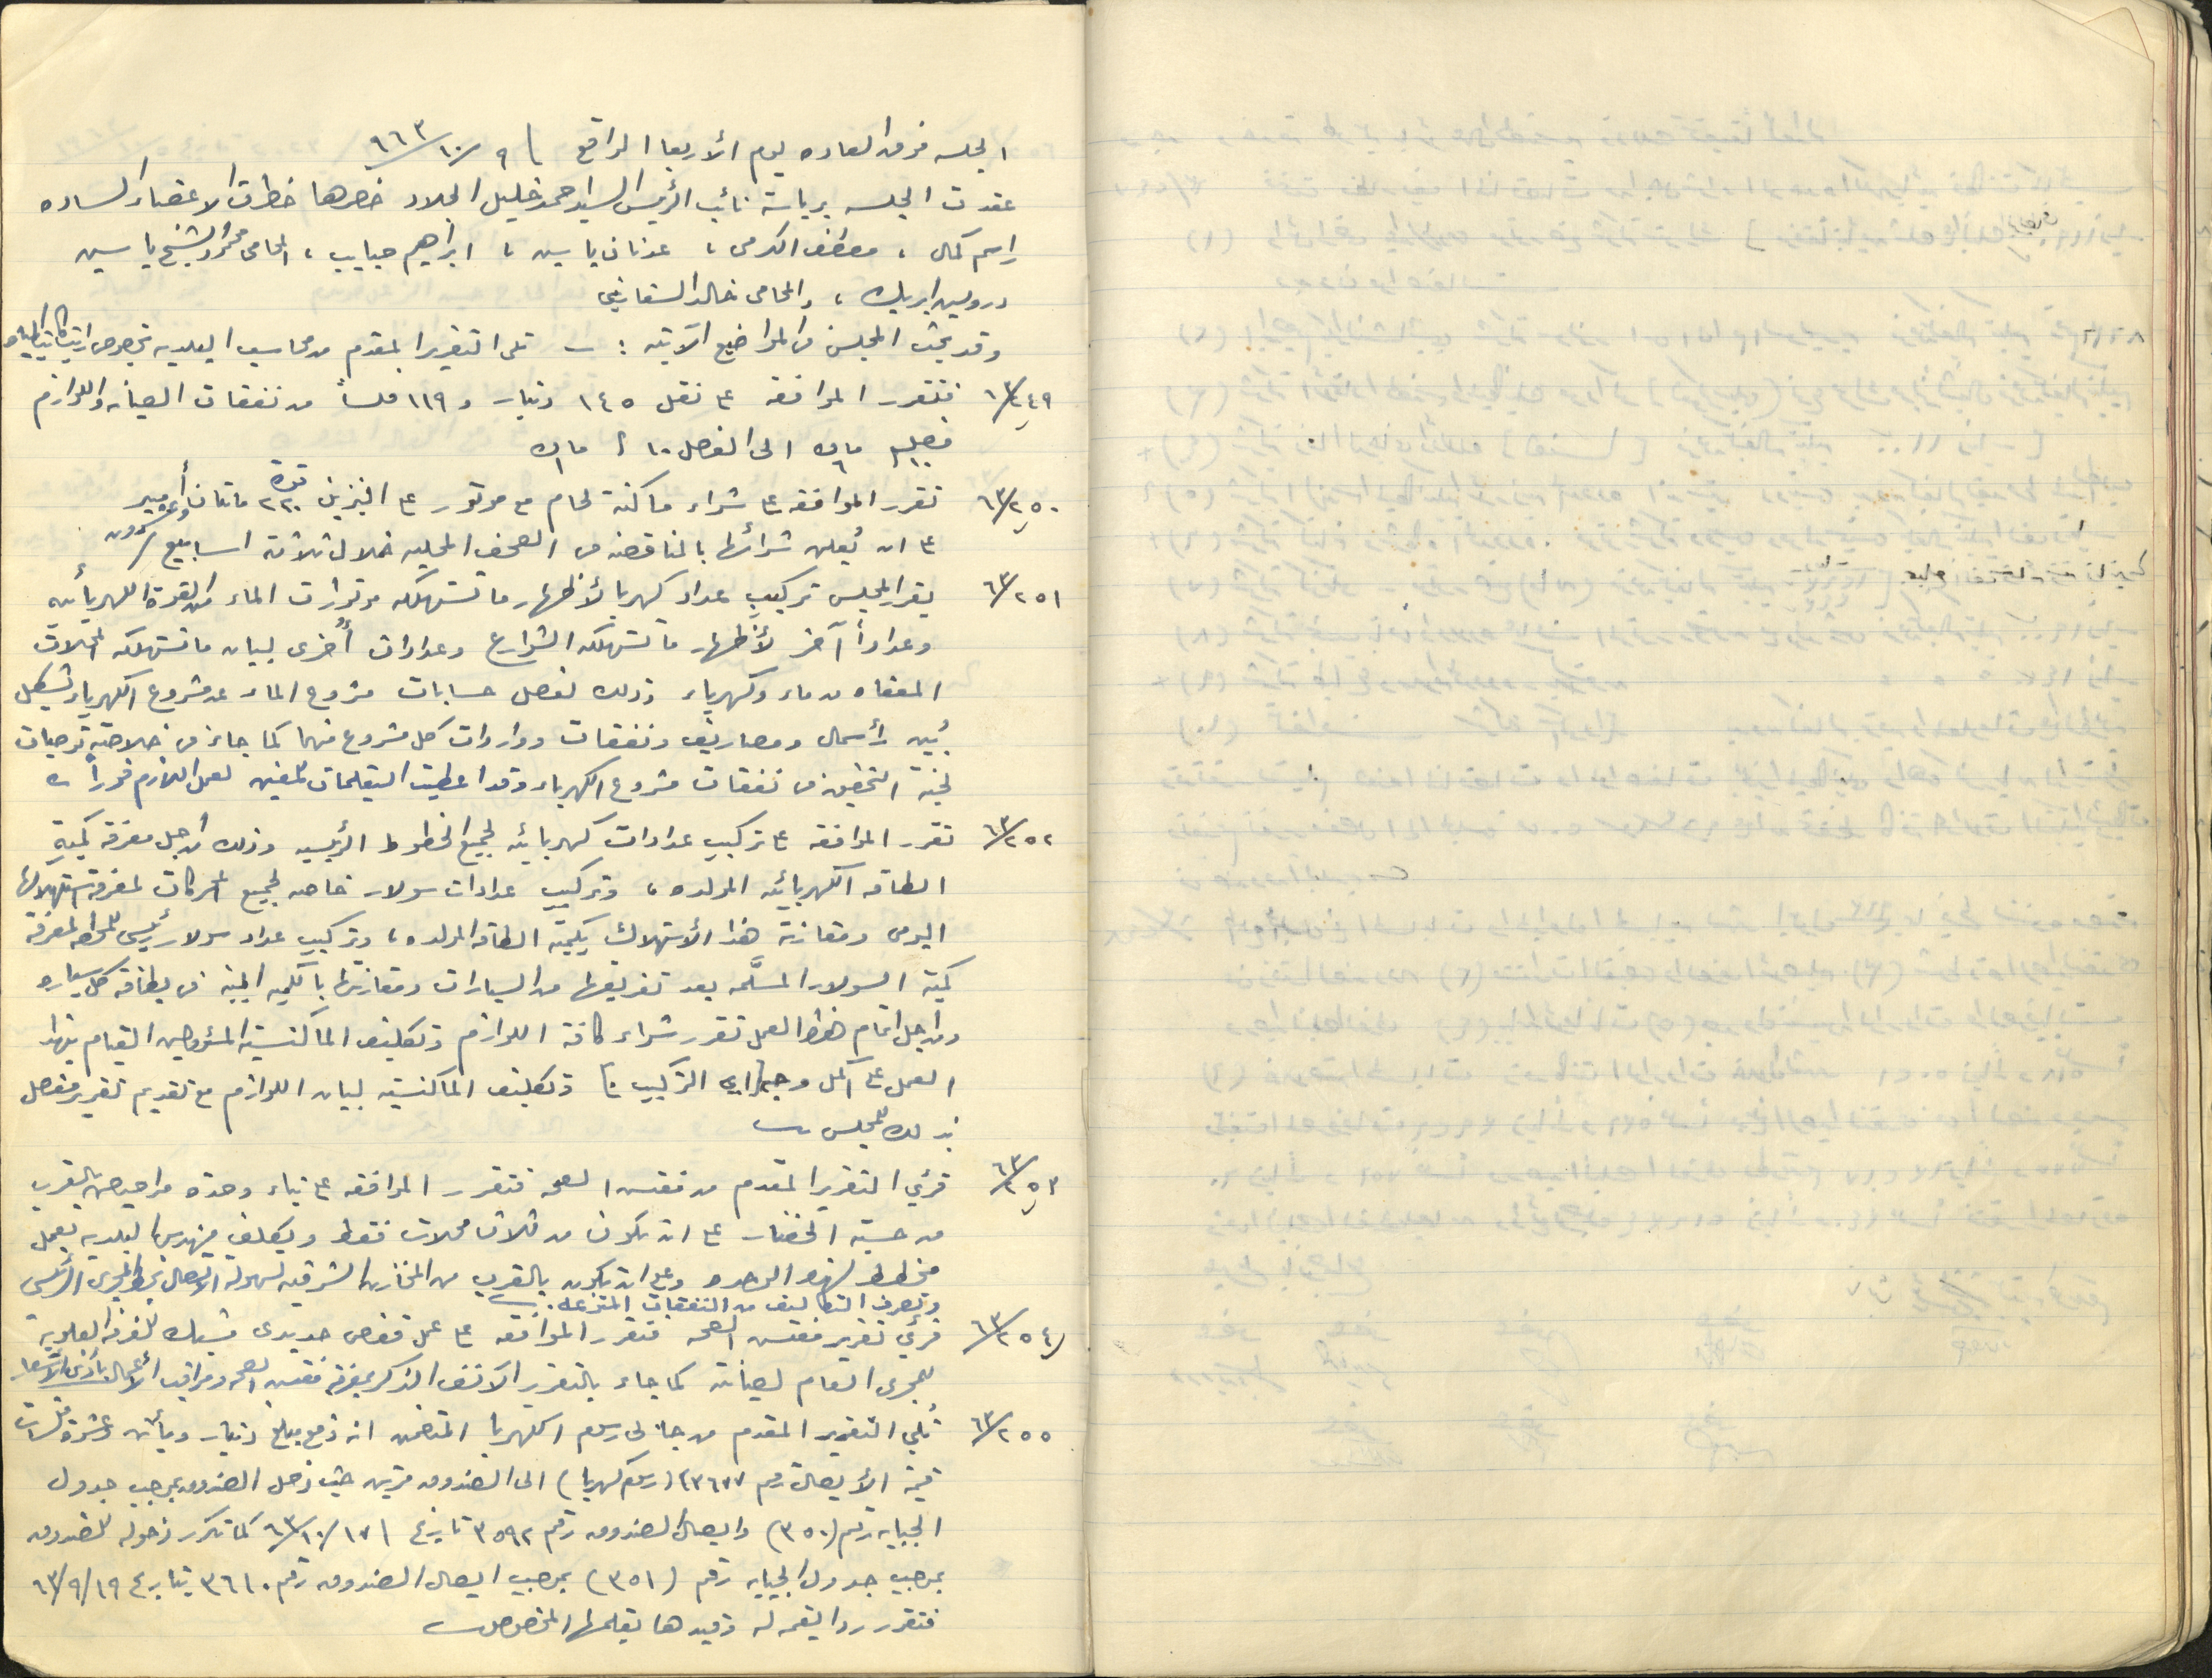 الجلسه فوق العاده ليوم الأربعا الواقع ٩/١٠/٩٦٣
عقدت الجلسه برياسة نائب الرئيس السيد احمد خليل الجلاد حضرها حضرات الاعضاء الساده
راسم كمال ، مصطفى الكرمي ، عدنان ياسين ، ابراهيم حبايب ، المحامي محمد الشيخ ياسين
درويش ابريك ، والمحامي خالد السفاريني
وقد بحث المجلس في المواضيع الآتيه : ـ تلى التقرير المقدم من محاسب البلديه بخصوص
٦٣/٢٤٩ فتقرر الموافقه على نقل ١٤٥ دينار و ١١٩ فلساً من نفقات الصيانه واللوازم
الى الفصل ١٠
٦٣/٢٥٠ تقرر الموافقه على شراء ماكنة لحام مع موتور على البنزين قوة ٢٢٠ مائتان وعشرون أمبير
على ان يُعلن شرائها بالمناقصه في الصحف المحليه خلال ثلاثة اسابيع
٦٣/٢٥١ يقرر المجلس تركيب عداد كهربا لأظهار ما تستهلكه موتورات الماء من القوة الكهربائيه
وعداداً آخر لأظهار ما تستهلكه الشوارع وعدادات أخرى لبيان ما تستهلكه المحلات
المعفاه من ماء وكهرباء وذلك لفصل حسابات مشروع الماء عن مشروع الكهرباء وبشكل
يُبين رأسمال ومصاريف ونفقات وواردات كل مشروع منهما كما جاء في خلاصة توصيات
لجنة التحقيق في نفقات مشروع الكهرباء وقد اعطيت التعليمات للمعنيين لعمل اللازم فوراً
٦٣/٢٥٢ تقرر الموافقه على تركيب عدادات كهربائيه لجميع الخطوط الرئيسيه وذلك من أجل معرفة كمية
الطاقه الكهربائيه المولده ، وتركيب عدادات سولار خاصه لجميع المحركات لمعرفة استهلاكها
اليومي ومقارنة هذا الأستهلاك بكمية الطاقه المولده ، وتركيب عداد سولار رئيسي لمعرفة
كمية السولار المسلَّمه بعد تفريغها من السيارات ومقارنتها بالكميه المبينه في بطاقة كل سياره
ومن اجل اتمام هذا العمل تقرر شراء كافة اللوازم وتكليف الماكنسيه المسئولين القيام بهذا
العمل على اكمل وجه اي التركيب وتكليف الماكنسيه لبيان اللوازم مع تقديم تقرير مفصل
بذلك للمجلس
٦٣/٢٥٣ قرئ التقرير المقدم من مفتش الصحه فتقرر الموافقه على بناء وحدة مراحيض بالقرب
من حسبة الخضار على ان تكون من ثلاث محلات فقط ويكلف مهندس البلديه بعمل
مخطط لهذه الوحده وعلى ان يكون بالقرب من المخازن الشرقيه لسهولة الاتصال بخط المجرى الرئيسي
وتصرف التكاليف من النفقات المتنوعه .
٦٣/٢٥٤ قرئ تقرير مفتش الصحه فتقرر الموافقه على عمل قفص حديدي مشبك للغرفه العلويه
للمجرى العام لصيانته كما جاء بالتقرير الآنف الذكر بمعرفة مفتش الصحه ومراقب الأعمال بأدنى الأسعار
٦٣/٢٥٥ تُلي التقرير المقدم من جابي رسوم الكهربا المتضمن انه دفع مبلغ دينار ومأتين وعشرة فلسات
قيمة الأيصال رقم ٣٦٧٧ (رسوم كهربا) الى الصندوق مرتين حيث دخل الصندوق بموجب جدول
الجبايه رقم (٣٥٠) وايصال الصندوق رقم ٣٥٩٢ تاريخ كما تكرر دخوله للصندوق
بموجب جدول الجبايه رقم (٣٥١) بموجب ايصال الصندوق رقم ٣٦١٠ بتاريخ ٦٣/٩/١٩
فتقرر رد القيمه له وقيدها بقلمها المخصوص